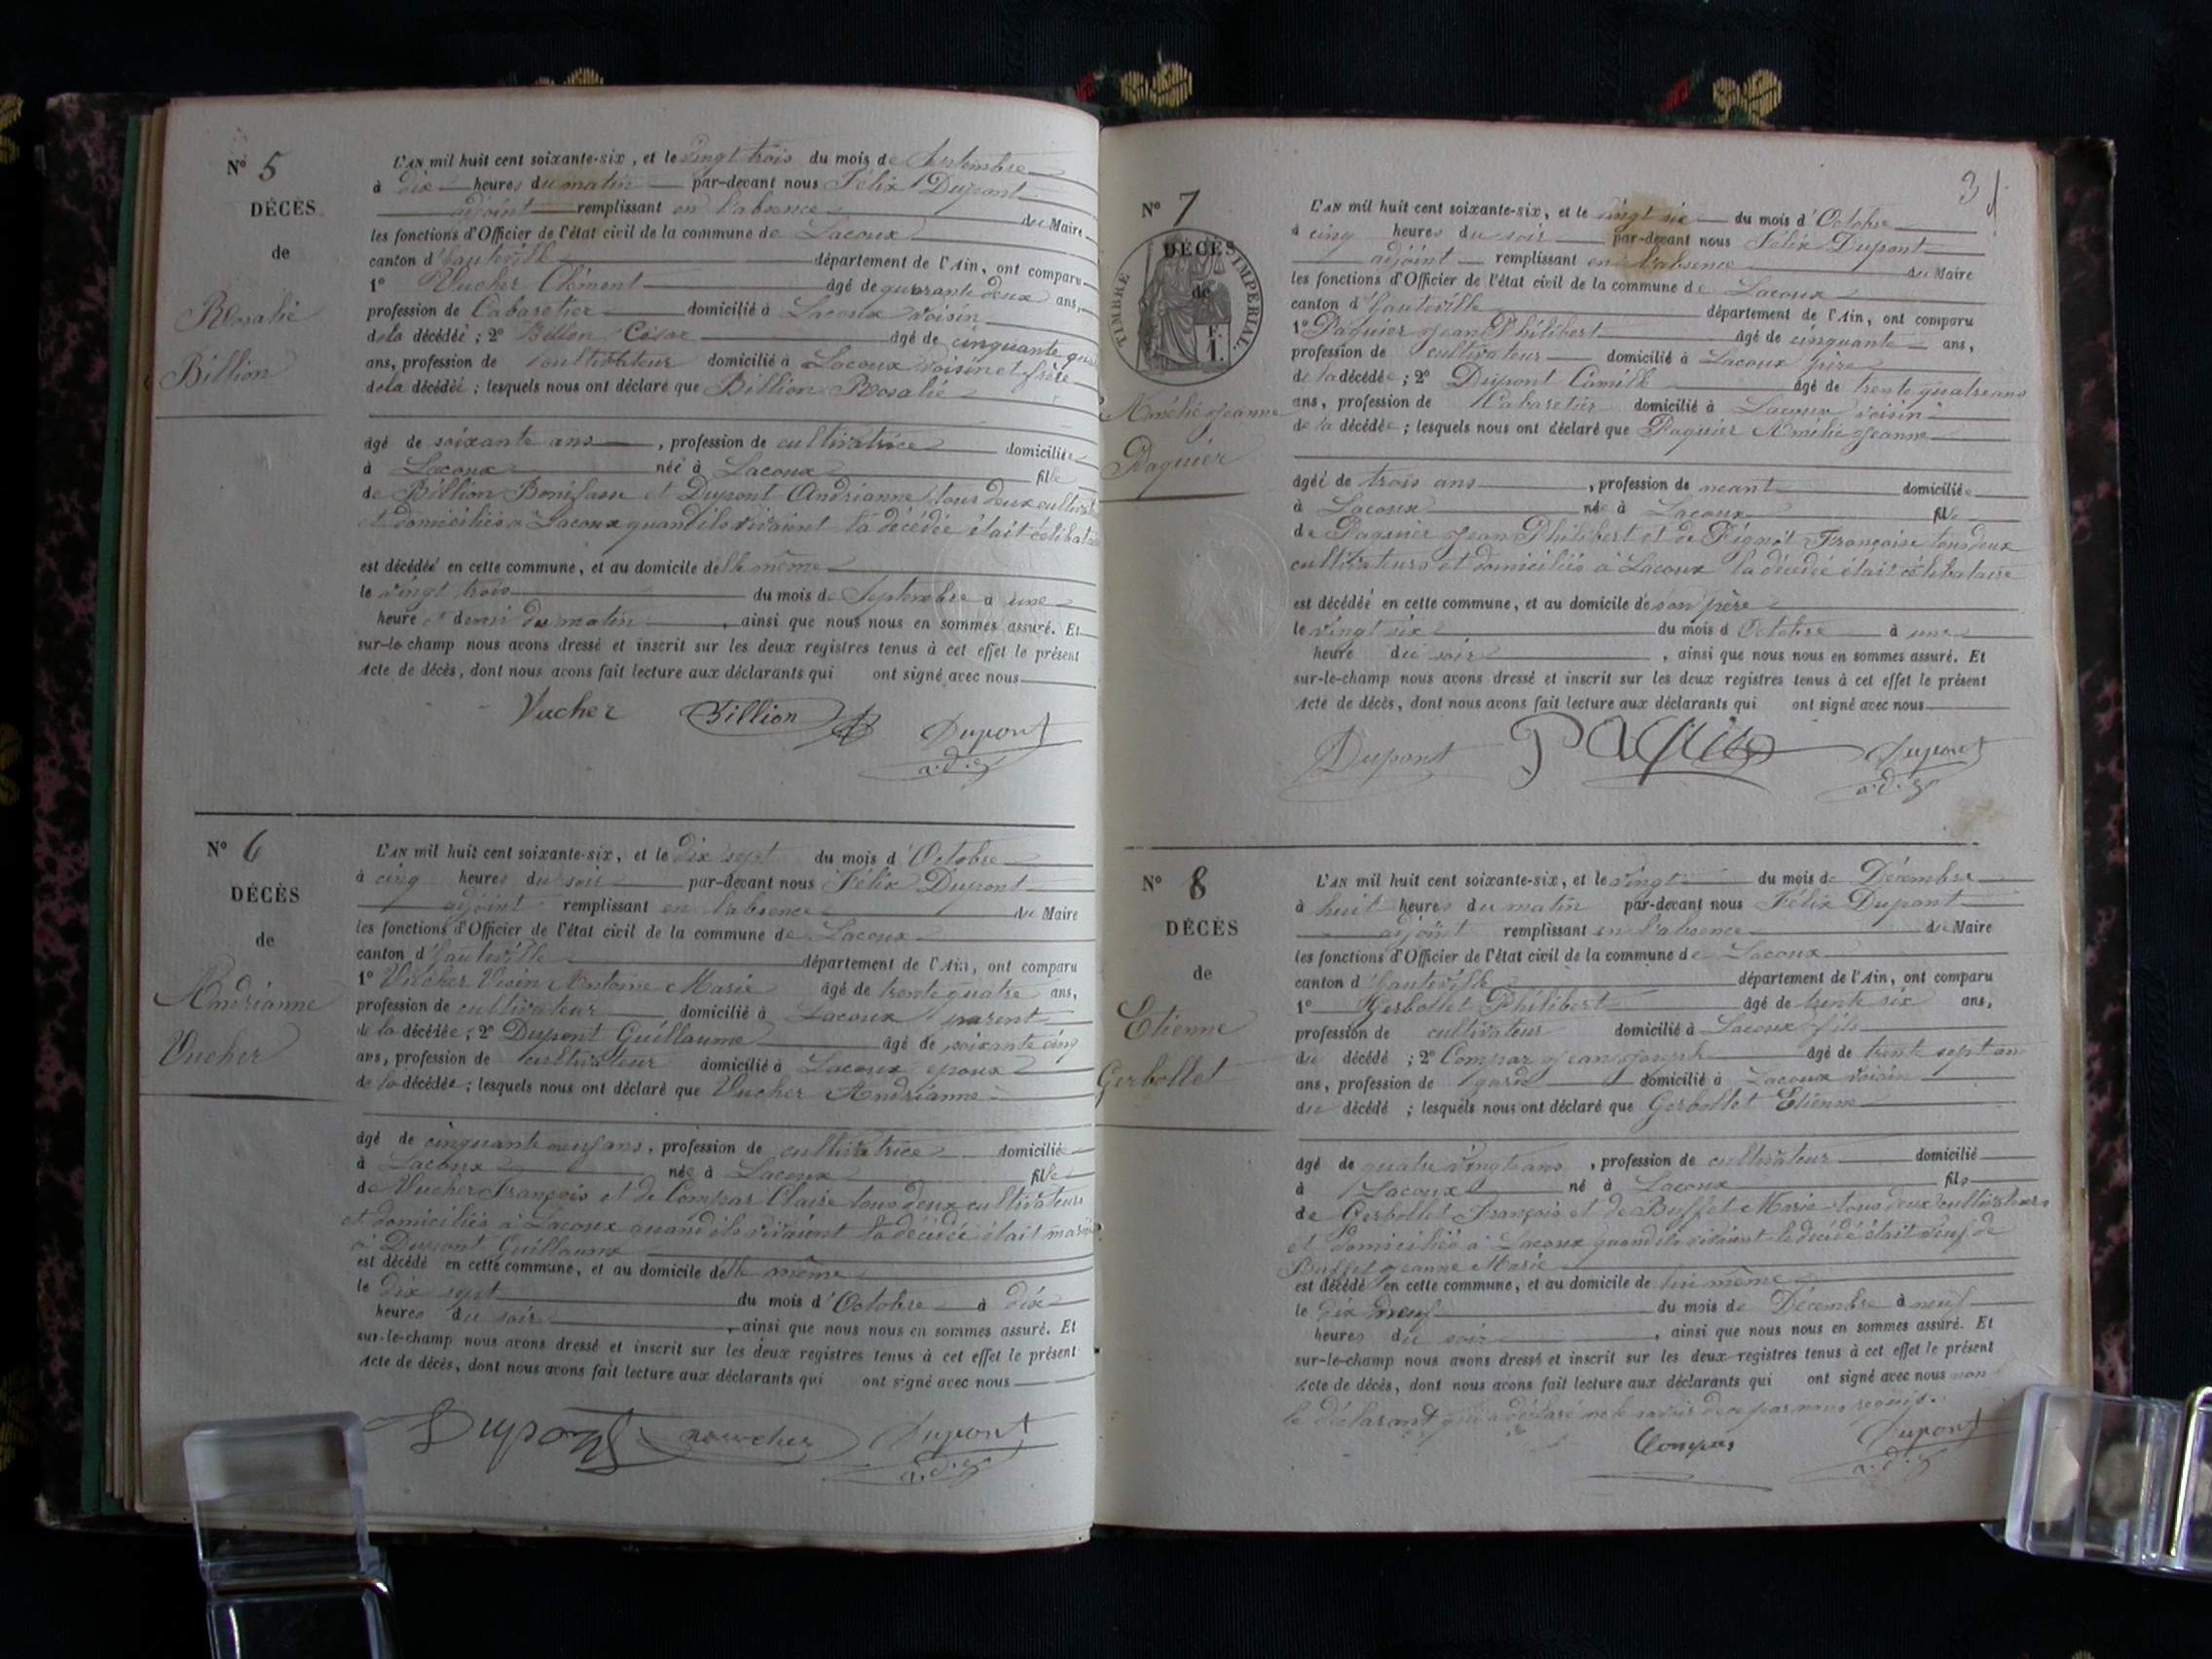 N° 5
DÉCÈS
de
Rosalie
Billion
L'AN mil huit cent soixante-six, et le vingt trois du mois de Septembre
à dix heures du matin par-devant nous Félix Dupont
adjoint remplissant en l'absence du Maire
les fonctions d'Officier de l'état civil de la commune de Lacoux
canton d'hauteville département de l'Ain, ont comparu
1° Vucher Clément âgé de quarante deux ans,
profession de Cabaretier domicilié à Lacoux voisin
de la décédée ; 2° Billon César âgé de cinquante
ans, profession de cultivateur domicilié à Lacoux voisin et frère
de la décédée ; lesquels nous ont déclaré que Billion Rosalie
âgé de soixante ans, profession de cultivatrice domiciliée
à Lacoux née à Lacoux fille
de Billion Bonifasse et Dupont Andrianne tous deux
et domiciliés à Lacoux quand ils vivaient la décédée était
est décédée en cette commune, et au domicile d'elle même
le vingt trois du mois de Septembre à une
heure et demi du matin, ainsi que nous nous en sommes assuré. Et
sur-le-champ nous avons dressé et inscrit sur les deux registres tenus à cet effet le présent
Acte de décès, dont nous avons fait lecture aux déclarants qui ont signé avec nous
Vucher Billion Dupont
N° 6
DÉCÈS
de
Andrianne
Vucher
L'AN mil huit cent soixante-six, et le dix sept du mois d'Octobre
à cinq heures du soir par-devant nous Félix Dupont
adjoint remplissant en l'absence du Maire
les fonctions d'Officier de l'état civil de la commune de Lacoux
canton d'hauteville département de l'Ain, ont comparu
1° Vucher Antoine Marie âgé de trente quatre ans,
profession de cultivateur domicilié à Lacoux parent
de la décédée ; 2° Dupont Guillaume âgé de soixante cinq
ans, profession de cultivateur domicilié à Lacoux epoux
de la décédée ; lesquels nous ont déclaré que Vucher Andrianne
âgé de cinquante neuf ans, profession de cultivatrice domiciliée
à Lacoux née à Lacoux fille
de Vucher François et de Compar Claire tous deux cultivateurs
et domiciliés à Lacoux quand ils vivaient la décédée était
à Dupont Guillaume
est décédé en cette commune, et au domicile d'elle même
le dix sept du mois d'Octobre à dix
heures du soir, ainsi que nous nous en sommes assuré. Et
sur-le-champ nous avons dressé et inscrit sur les deux registres tenus à cet effet le présent
Acte de décès, dont nous avons fait lecture aux déclarants qui ont signé avec nous
Dupont Dupont
3
N° 7
DÉCÈS
de
TIMBRE IMPERIAL
Amélie Jeanne
Paquier
L'AN mil huit cent soixante-six, et le vingt six du mois d'Octobre
à cinq heures du soir par-devant nous Félix Dupont
adjoint remplissant en l'absence du Maire
les fonctions d'Officier de l'état civil de la commune de Lacoux
canton d'hauteville département de l'Ain, ont comparu
1° Paquier Jean Philibert âgé de cinquante ans,
profession de cultivateur domicilié à Lacoux père
de la décédée ; 2° Dupont Camille âgé de trente quatre ans
ans, profession de Cabaretier domicilié à Lacoux voisin
de la décédée ; lesquels nous ont déclaré que Paquier Amélie Jeanne
âgée de trois ans, profession de neant domiciliée
à Lacoux née à Lacoux fille
de Paquier Jean Philibert et de Françoise tous deux
cultivateurs et domiciliés à Lacoux la décédée était célibataire
est décédée en cette commune, et au domicile de son père
le vingt six du mois d Octobre à une
heure du soir, ainsi que nous nous en sommes assuré. Et
sur-le-champ nous avons dressé et inscrit sur les deux registres tenus à cet effet le présent
Acte de décès, dont nous avons fait lecture aux déclarants qui ont signé avec nous
Dupont Dupont
N° 8
DÉCÈS
de
Etienne
Gerbollet
L'AN mil huit cent soixante-six, et le vingt du mois de Décembre
à huit heures du matin par-devant nous Félix Dupont
adjoint remplissant en l'absence du Maire
les fonctions d'Officier de l'état civil de la commune de Lacoux
canton d'hauteville département de l'Ain, ont comparu
1° Gerbollet Philibert âgé de trente six ans,
profession de cultivateur domicilié à Lacoux fils
du décédé ; 2° Compar Jean Joseph âgé de trente sept ans
ans, profession de garde domicilié à Lacoux voisin
du décédé ; lesquels nous ont déclaré que Gerbollet Etienne
âgé de quatre vingt ans, profession de cultivateur domicilié
à Lacoux né à Lacoux fils
de Gerbollet François et de Buffet Marie tous deux cultivateurs
et domiciliés à Lacoux quand ils vivaient le décédé était veuf de
Buffet Jeanne Marie
est décédé en cette commune, et au domicile de lui même
le dix neuf du mois de Décembre à neuf
heures du soir, ainsi que nous nous en sommes assuré. Et
sur-le-champ nous avons dressé et inscrit sur les deux registres tenus à cet effet le présent
Acte de décès, dont nous avons fait lecture aux déclarants qui ont signé avec nous non
le déclarant qui a déclaré ne le savoir de ce par nous requis.
Compar Dupont